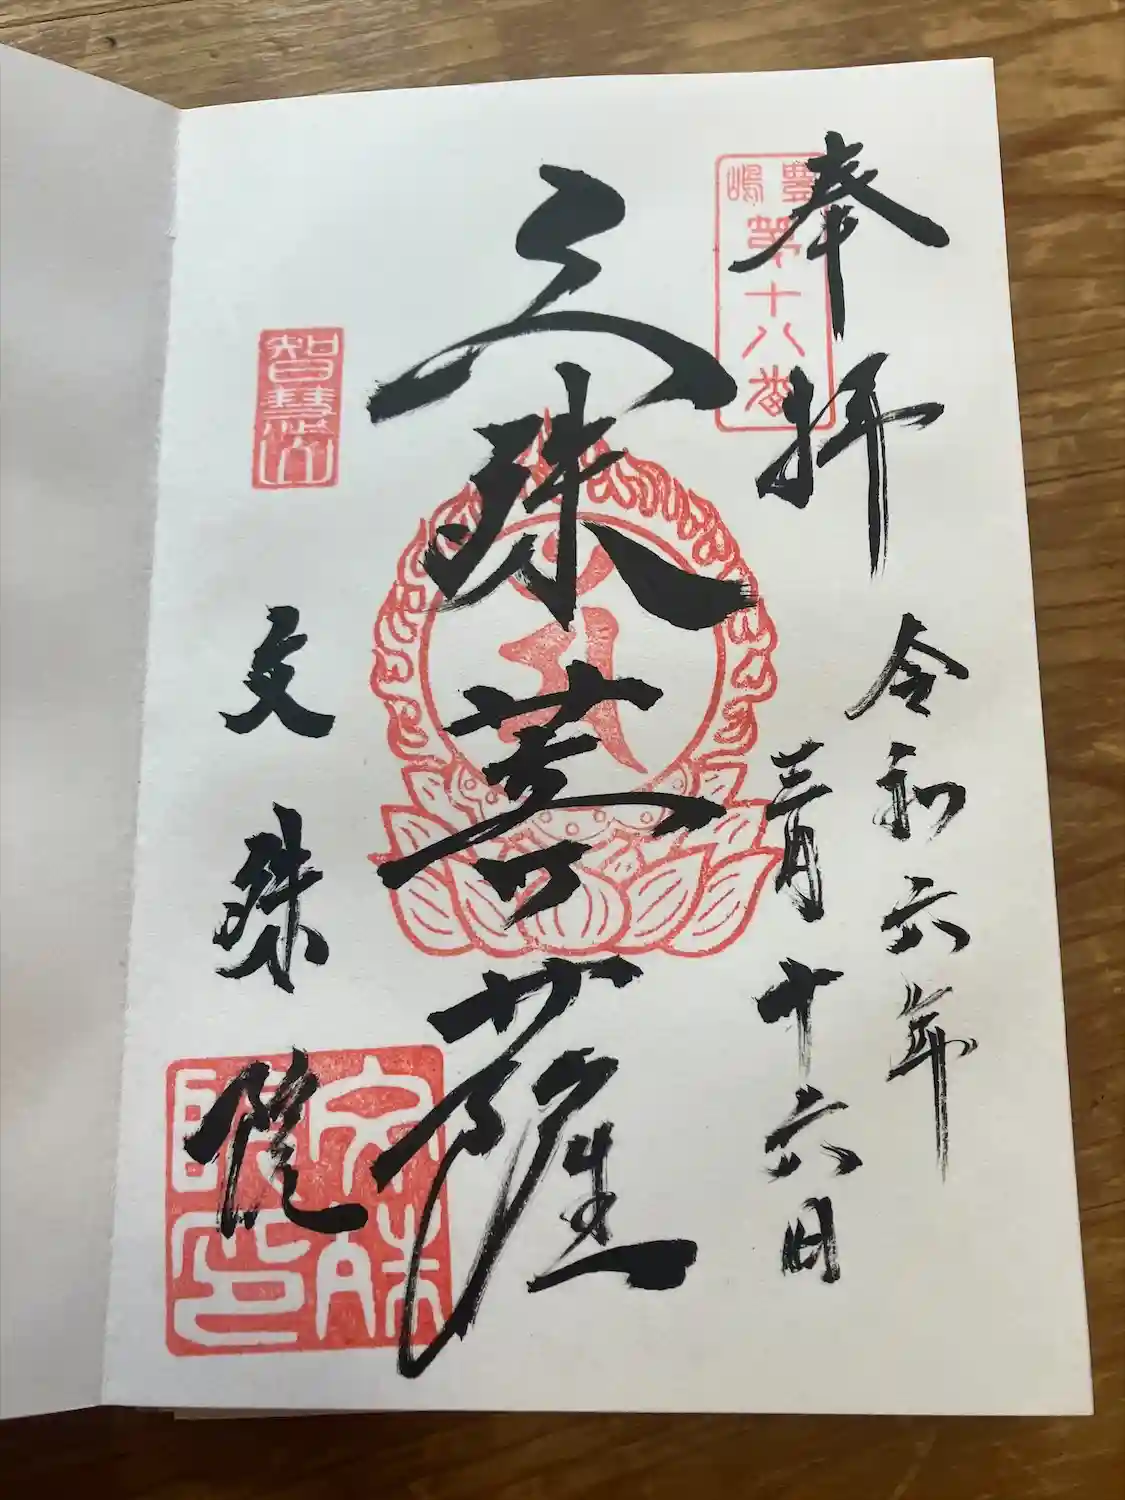 奉拝
豊嶋
第十八番
令和六年
三月十六日
文殊菩薩
智慧山
文殊院
文殊
院印